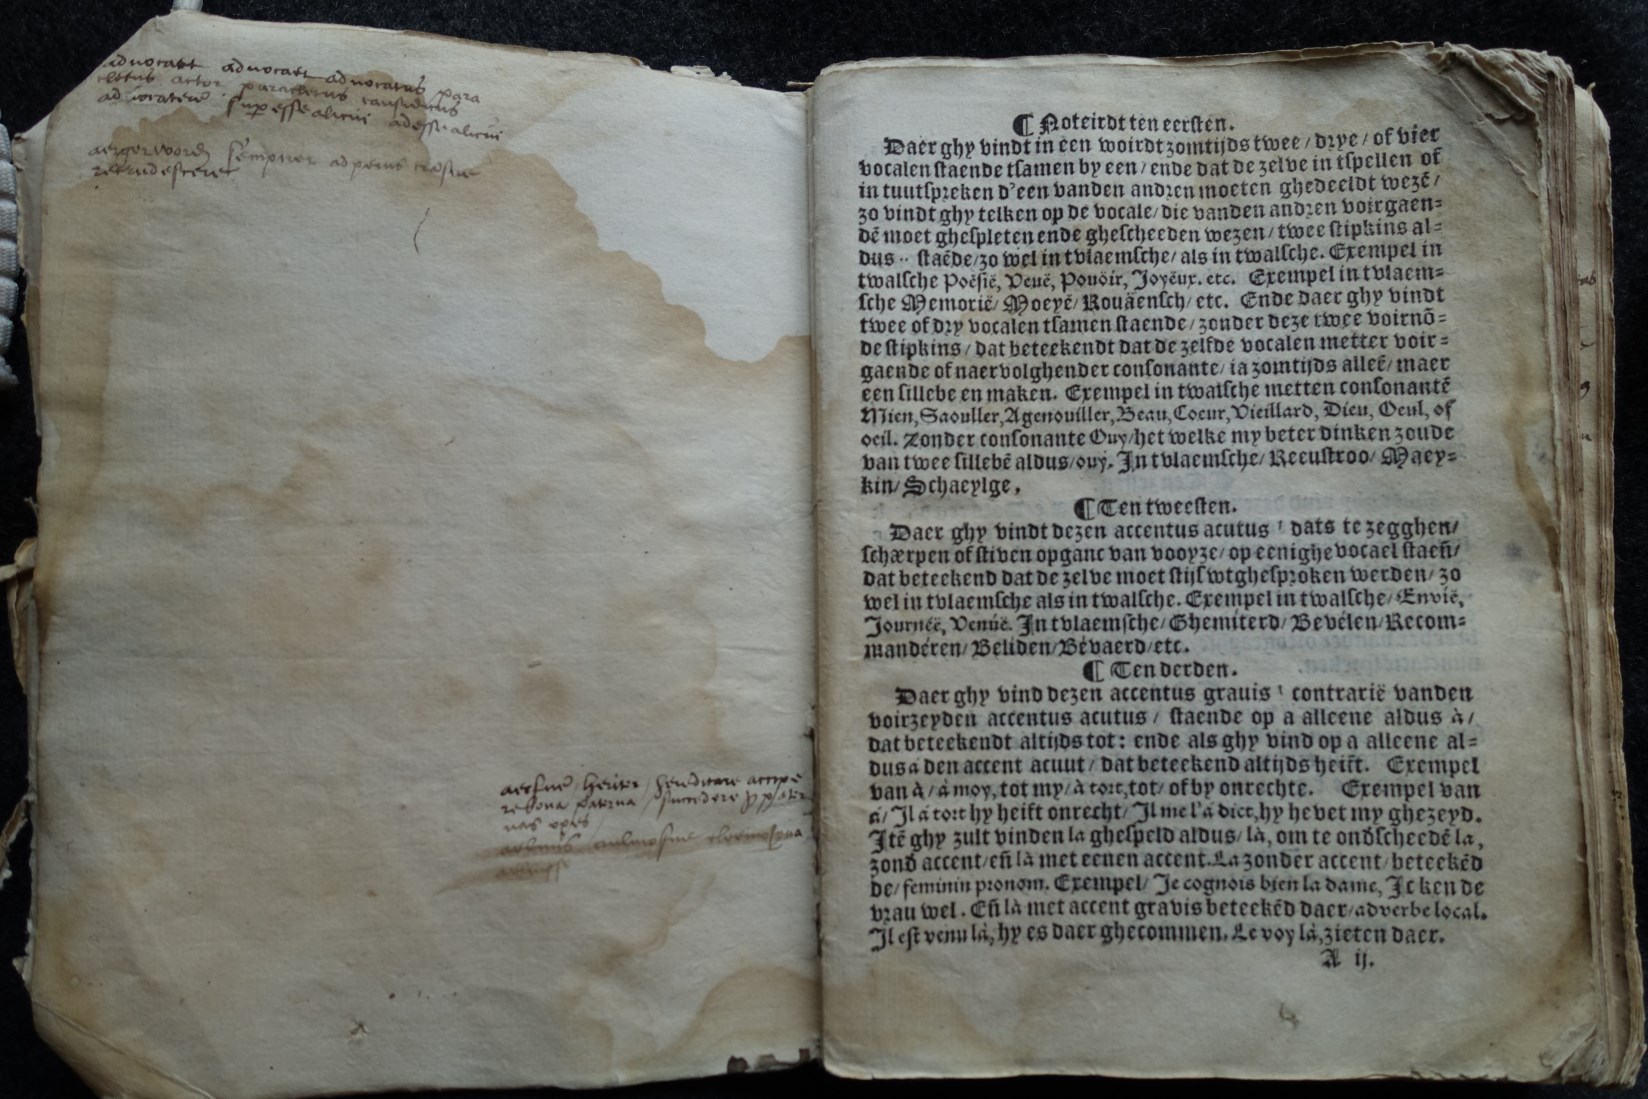 advocaet advocaet advocatus para
cletus actor paracletus causidicus
superesse alicui adesse alicui
recrudescere
¶ Noteirdt ten eersten.
Daer ghy vindt in een woirdt zomtijds twee / drye / of vier
vocalen staende tsamen by een / ende dat de zelve in tspellen of
in tuutspreken d'een vanden andren moeten ghedeeldt wezē /
zo vindt ghy telken op de vocale / die vanden andren voirgaen=
dē moet ghespleten ende ghescheeden wezen / twee stipkins al=
dus ¨ staēde / zo wel in tvlaemsche / als in twalsche. Exempel in
twalsche Poësië, Veuë, Pouöir, Joyëux. etc. Exempel in tvlaem=
sche Memorië / Moeyë / Rouäensch / etc. Ende daer ghy vindt
twee of dry vocalen tsamen staende / zonder deze twee voirnō=
de stipkins / dat beteekendt dat de zelfde vocalen metter voir=
gaende of naervolghender consonante / ia zomtijds alleē / maer
een sillebe en maken. Exempel in twalsche metten consonantē
Mien, Saouller, Agenouiller, Beau, Coeur, Vieillard, Dieu, Oeul, of
oeil. Zonder consonante Ouy / het welke my beter dinken zoude
van twee sillebē aldus / ouÿ. In tvlaemsche / Reeustroo / Maey=
kin / Schaeylge,
¶ Ten tweesten.
Daer ghy vindt dezen accentus acutus ´ dats te zegghen /
schærpen of stiven opganc van vooyze / op eenighe vocael staeñ /
dat beteekend dat de zelve moet stijf wtghesproken werden / zo
wel in tvlaemsche als in twalsche. Exempel in twalsche / Envié,
Journéë, Venúë. In tvlaemsche / Ghemíterd / Bevélen / Recom=
mandéren / Belíden / Bevaerd / etc.
¶ Ten derden.
Daer ghy vind dezen accentus grauis ` contrarië vanden
voirzeyden accentus acutus / staende op a alleene aldus à /
dat beteekendt altijds tot: ende als ghy vind op a alleene al=
dus á den accent acuut / dat beteekend altijds heift. Exempel
van à / à moy, tot my / à tort, tot / of by onrechte. Exempel van
á / Il á tort hy heift onrecht / Il me l'á dict, hy hevet my ghezeyd.
Itē ghy zult vinden la ghespeld aldus / là, om te ondscheedē la,
zond accent / eñ là met eenen accent. La zonder accent / beteekēd
de / feminin pronom. Exempel / Je cognois bien la dame, Ic ken de
vrau wel. Eñ là met accent gravis beteekēd daer / adverbe local.
Il est venu là, hy es daer ghecommen. Le voy là, zieten daer.
A ij.